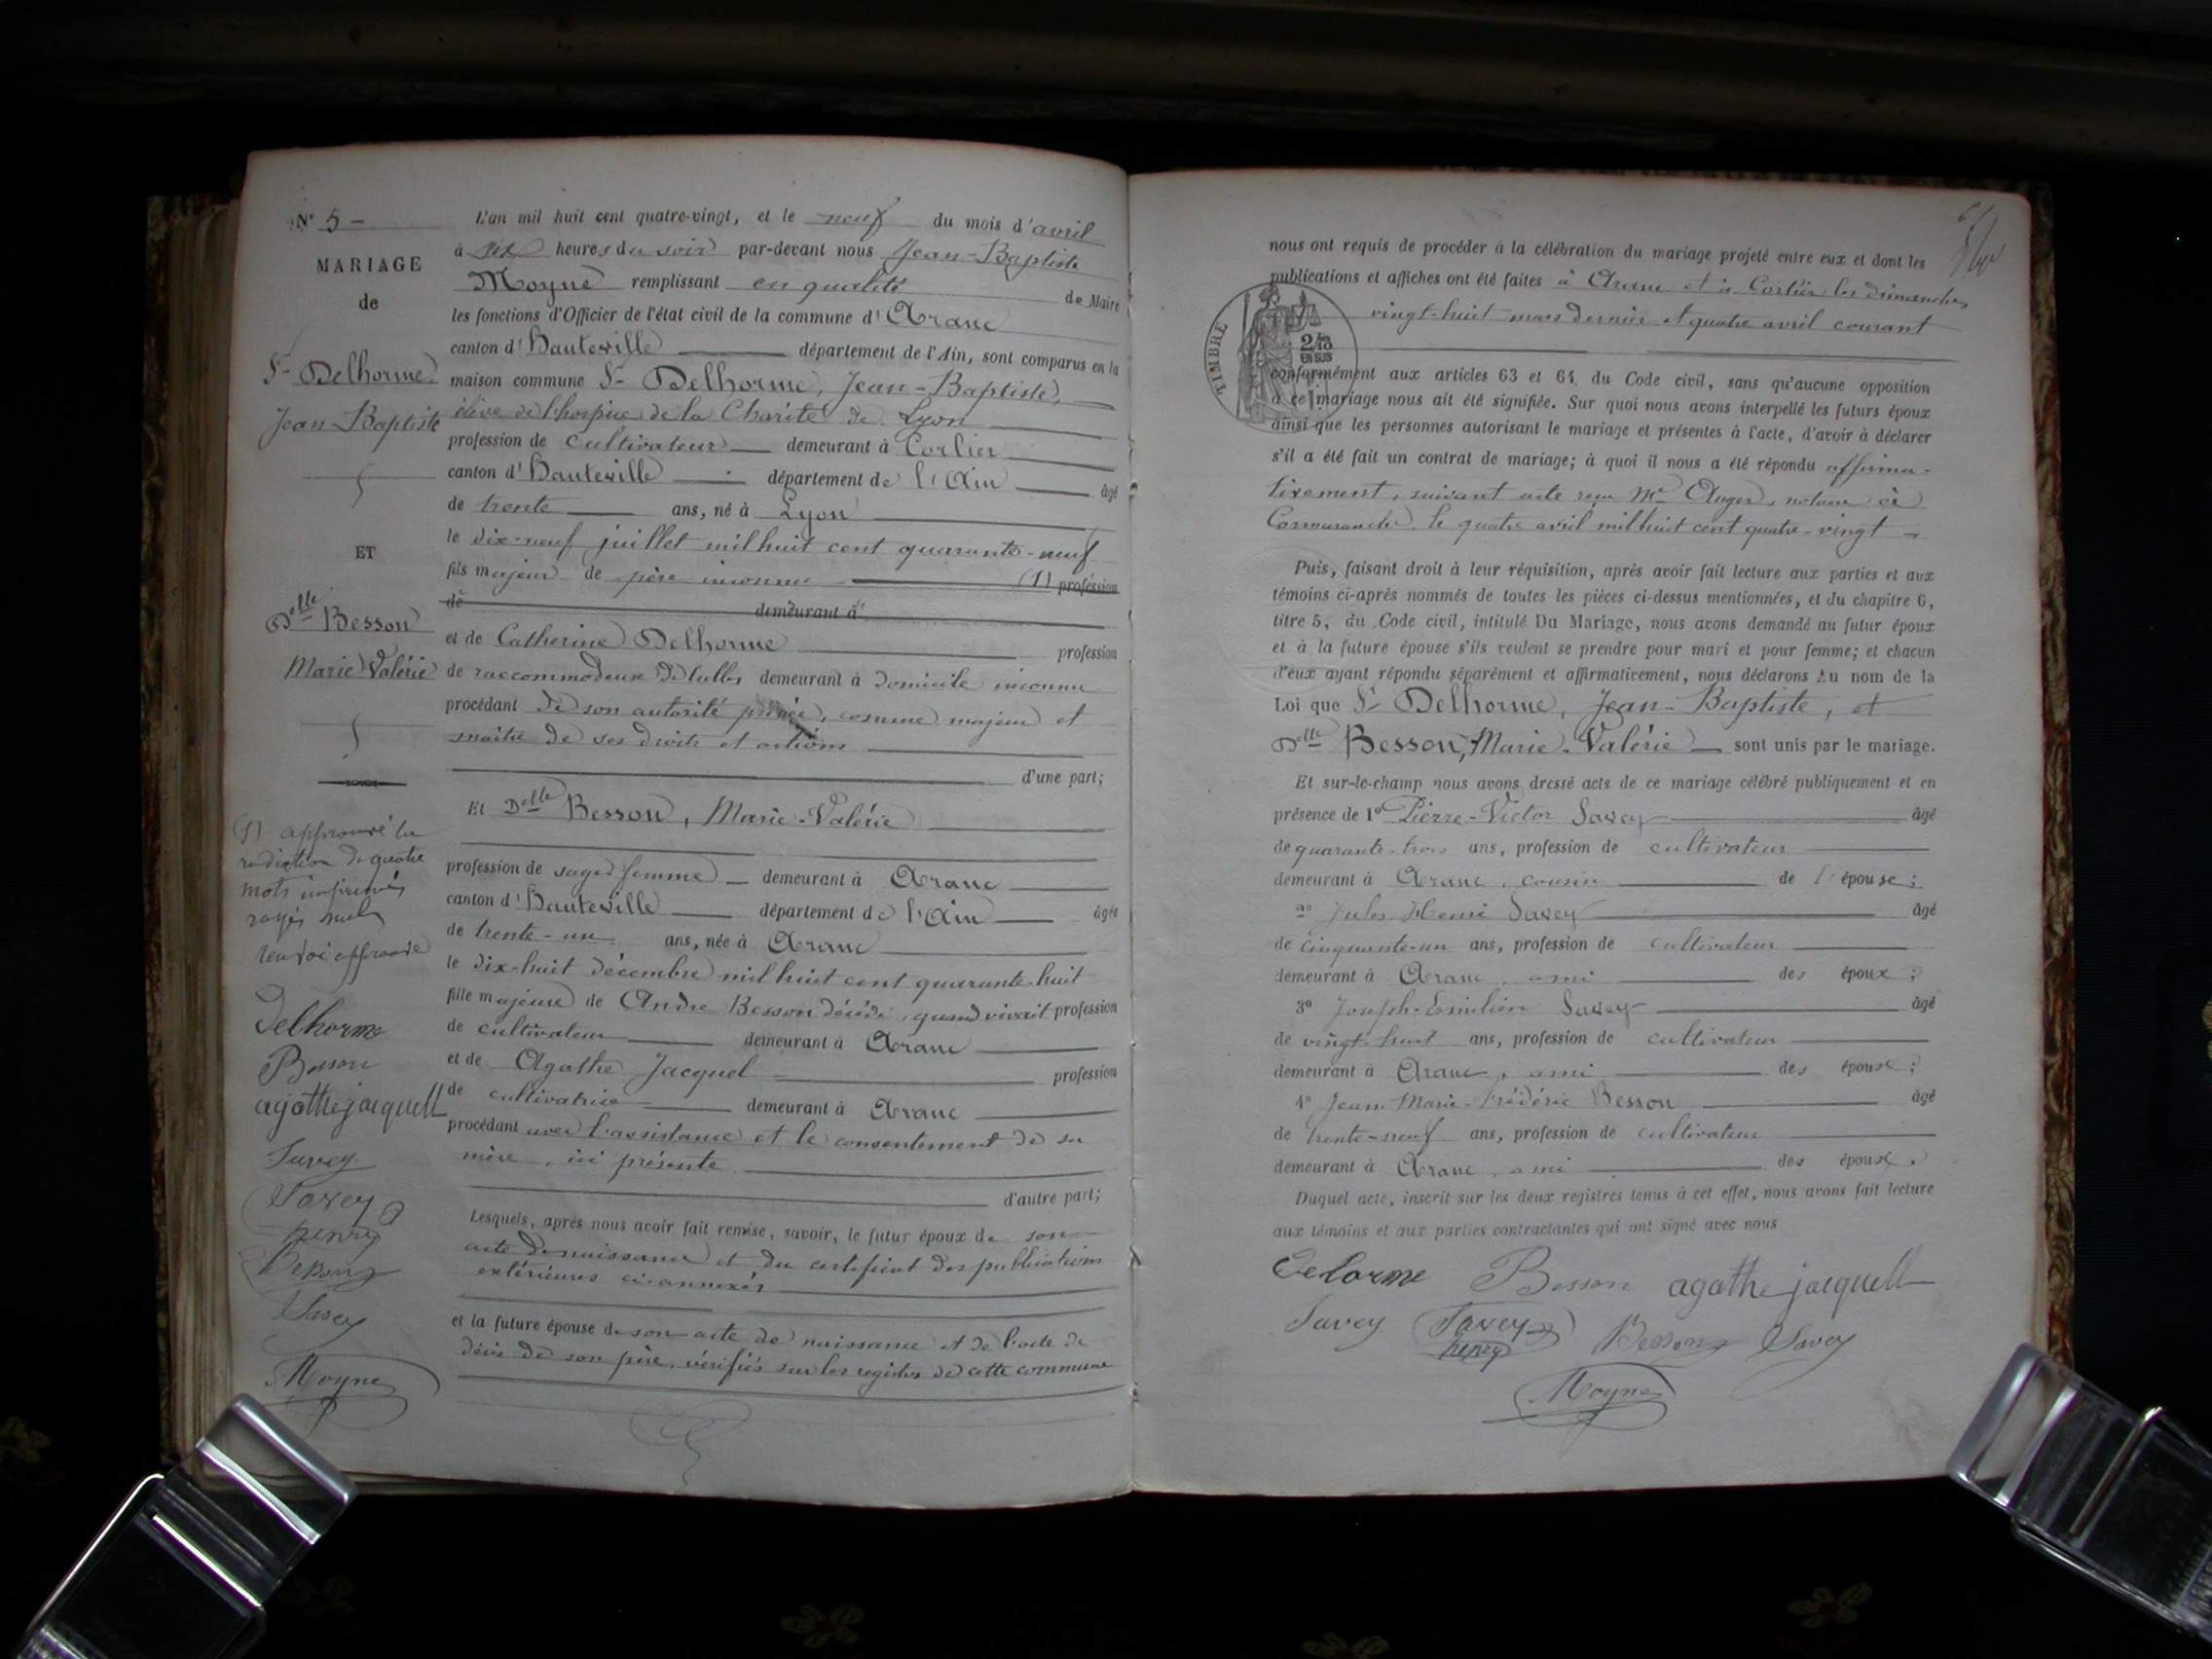 N° 5 -
MARIAGE
de
Sr Delhorme
Jean-Baptiste
ET
Delle Besson
Marie Valérie
(1) approuvé la
radiation de quatre
mots imprimés
rayés nuls
renvoi approuvé
Delhorme
Besson
agathe jacquell
Savey
Savey
henry
Besson
Savey
Moyne
L'an mil huit cent quatre-vingt, et le neuf du mois d'avril
à six heures du soir par-devant nous Jean-Baptiste
Moyne remplissant en qualité de Maire
les fonctions d'Officier de l'état civil de la commune d'Aranc
canton d'Hauteville département de l'Ain, sont comparus en la
maison commune Sr Delhorme, Jean-Baptiste,
élève de l'hospice de la Charité de Lyon
profession de cultivateur demeurant à Corlier
canton d'Hauteville département de l'Ain âgé
de trente ans, né à Lyon
le dix-neuf juillet mil huit cent quarante-neuf
fils majeur de père inconnu (1) profession
de demeurant à
et de Catherine Delhorme profession
de raccommodeuse de tulles demeurant à domicile inconnu
procédant de son autorité privée, comme majeur et
maître de ses droits et actions
d'une part;
Et Delle Besson, Marie-Valérie
profession de sage-femme demeurant à Aranc
canton d'Hauteville département de l'Ain âgée
de trente-un ans, née à Aranc
le dix-huit décembre mil huit cent quarante-huit
fille majeure de André Besson décédé, quand vivait profession
de cultivateur demeurant à Aranc
et de Agathe Jacquel profession
de cultivatrice demeurant à Aranc
procédant avec l'assistance et le consentement de sa
mère, ici présente
d'autre part;
Lesquels, après nous avoir fait remise, savoir, le futur époux de son
acte de naissance et du certificat des publications
extérieures ci-annexés
et la future épouse de son acte de naissance et de l'acte de
décès de son père, vérifiés sur les registres de cette commune
nous ont requis de procéder à la célébration du mariage projeté entre eux et dont les
publications et affiches ont été faites à Aranc et à Corlier les dimanches
vingt-huit mars dernier et quatre avril courant
TIMBRE
2/10
EN SUS
conformément aux articles 63 et 64 du Code civil, sans qu'aucune opposition
à ce mariage nous ait été signifiée. Sur quoi nous avons interpellé les futurs époux
ainsi que les personnes autorisant le mariage et présentes à l'acte, d'avoir à déclarer
s'il a été fait un contrat de mariage; à quoi il nous a été répondu affirma-
tivement, suivant acte reçu Me Auger, notaire à
Cormaranche, le quatre avril mil huit cent quatre-vingt
Puis, faisant droit à leur réquisition, après avoir fait lecture aux parties et aux
témoins ci-après nommés de toutes les pièces ci-dessus mentionnées, et du chapitre 6,
titre 5, du Code civil, intitulé Du Mariage, nous avons demandé au futur époux
et à la future épouse s'ils veulent se prendre pour mari et pour femme; et chacun
d'eux ayant répondu séparément et affirmativement, nous déclarons Au nom de la
Loi que Sr Delhorme, Jean-Baptiste, et
Delle Besson, Marie-Valérie sont unis par le mariage.
Et sur-le-champ nous avons dressé acte de ce mariage célébré publiquement et en
présence de 1° Pierre-Victor Savey âgé
de quarante-trois ans, profession de cultivateur
demeurant à Aranc, cousin de l'épouse;
2° Jules Henri Savey âgé
de cinquante-un ans, profession de cultivateur
demeurant à Aranc, ami des époux;
3° Joseph-Emilien Savey âgé
de vingt-huit ans, profession de cultivateur
demeurant à Aranc, ami des époux;
4° Jean-Marie-Frédéric Besson âgé
de trente-neuf ans, profession de cultivateur
demeurant à Aranc, ami des époux.
Duquel acte, inscrit sur les deux registres tenus à cet effet, nous avons fait lecture
aux témoins et aux parties contractantes qui ont signé avec nous
Delorme Besson agathe jacquell
Savey Savey henry Besson Savey
Moyne